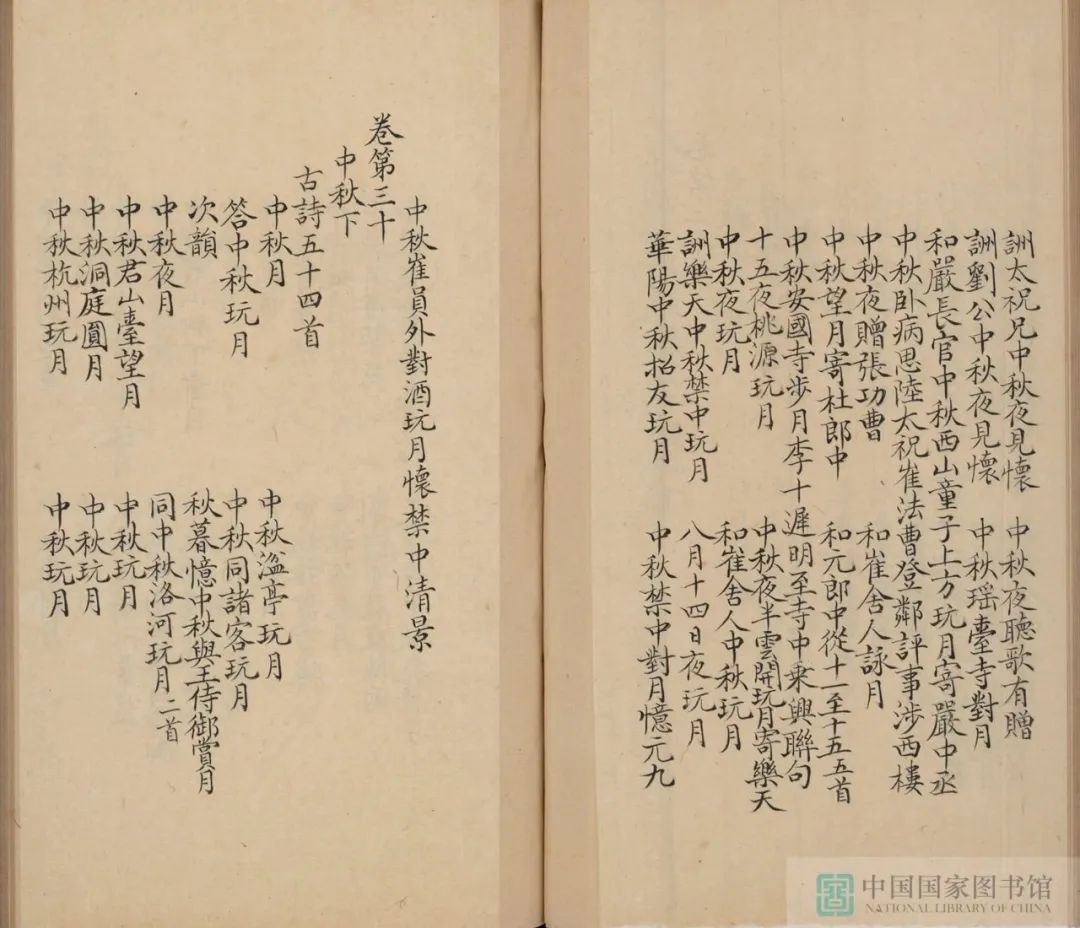 詶太祝兄中秋夜見懷　中秋夜聽歌有贈
詶劉公中秋夜見懷　中秋瑶臺寺對月
和嚴長官中秋西山童子上方玩月寄嚴中丞
中秋卧病思陸太祝崔法曹登鄰評事涉西樓
中秋夜贈張功曹　和崔舍人詠月
中秋望月寄杜郎中　和元郎中從十一至十五五首
中秋安國寺步月李十遲明至寺中乗興聯句
十五夜桃源玩月　中秋夜半雲開玩月寄樂天
中秋夜玩月　和崔舍人中秋玩月
詶樂天中秋禁中玩月　八月十四日夜玩月
華陽中秋招友玩月　中秋禁中對月憶元九
中秋崔員外對酒玩月懷禁中清景
卷第三十
中秋下
古詩五十四首
中秋月　中秋湓亭玩月
答中秋玩月　中秋同諸客玩月
次韻　秋暮憶中秋與王侍御賞月
中秋夜月　同中秋洛河玩月二首
中秋君山臺望月　中秋玩月
中秋洞庭圓月　中秋玩月
中秋杭州玩月　中秋玩月
中国国家图书馆
NATIONAL LIBRARY OF CHINA